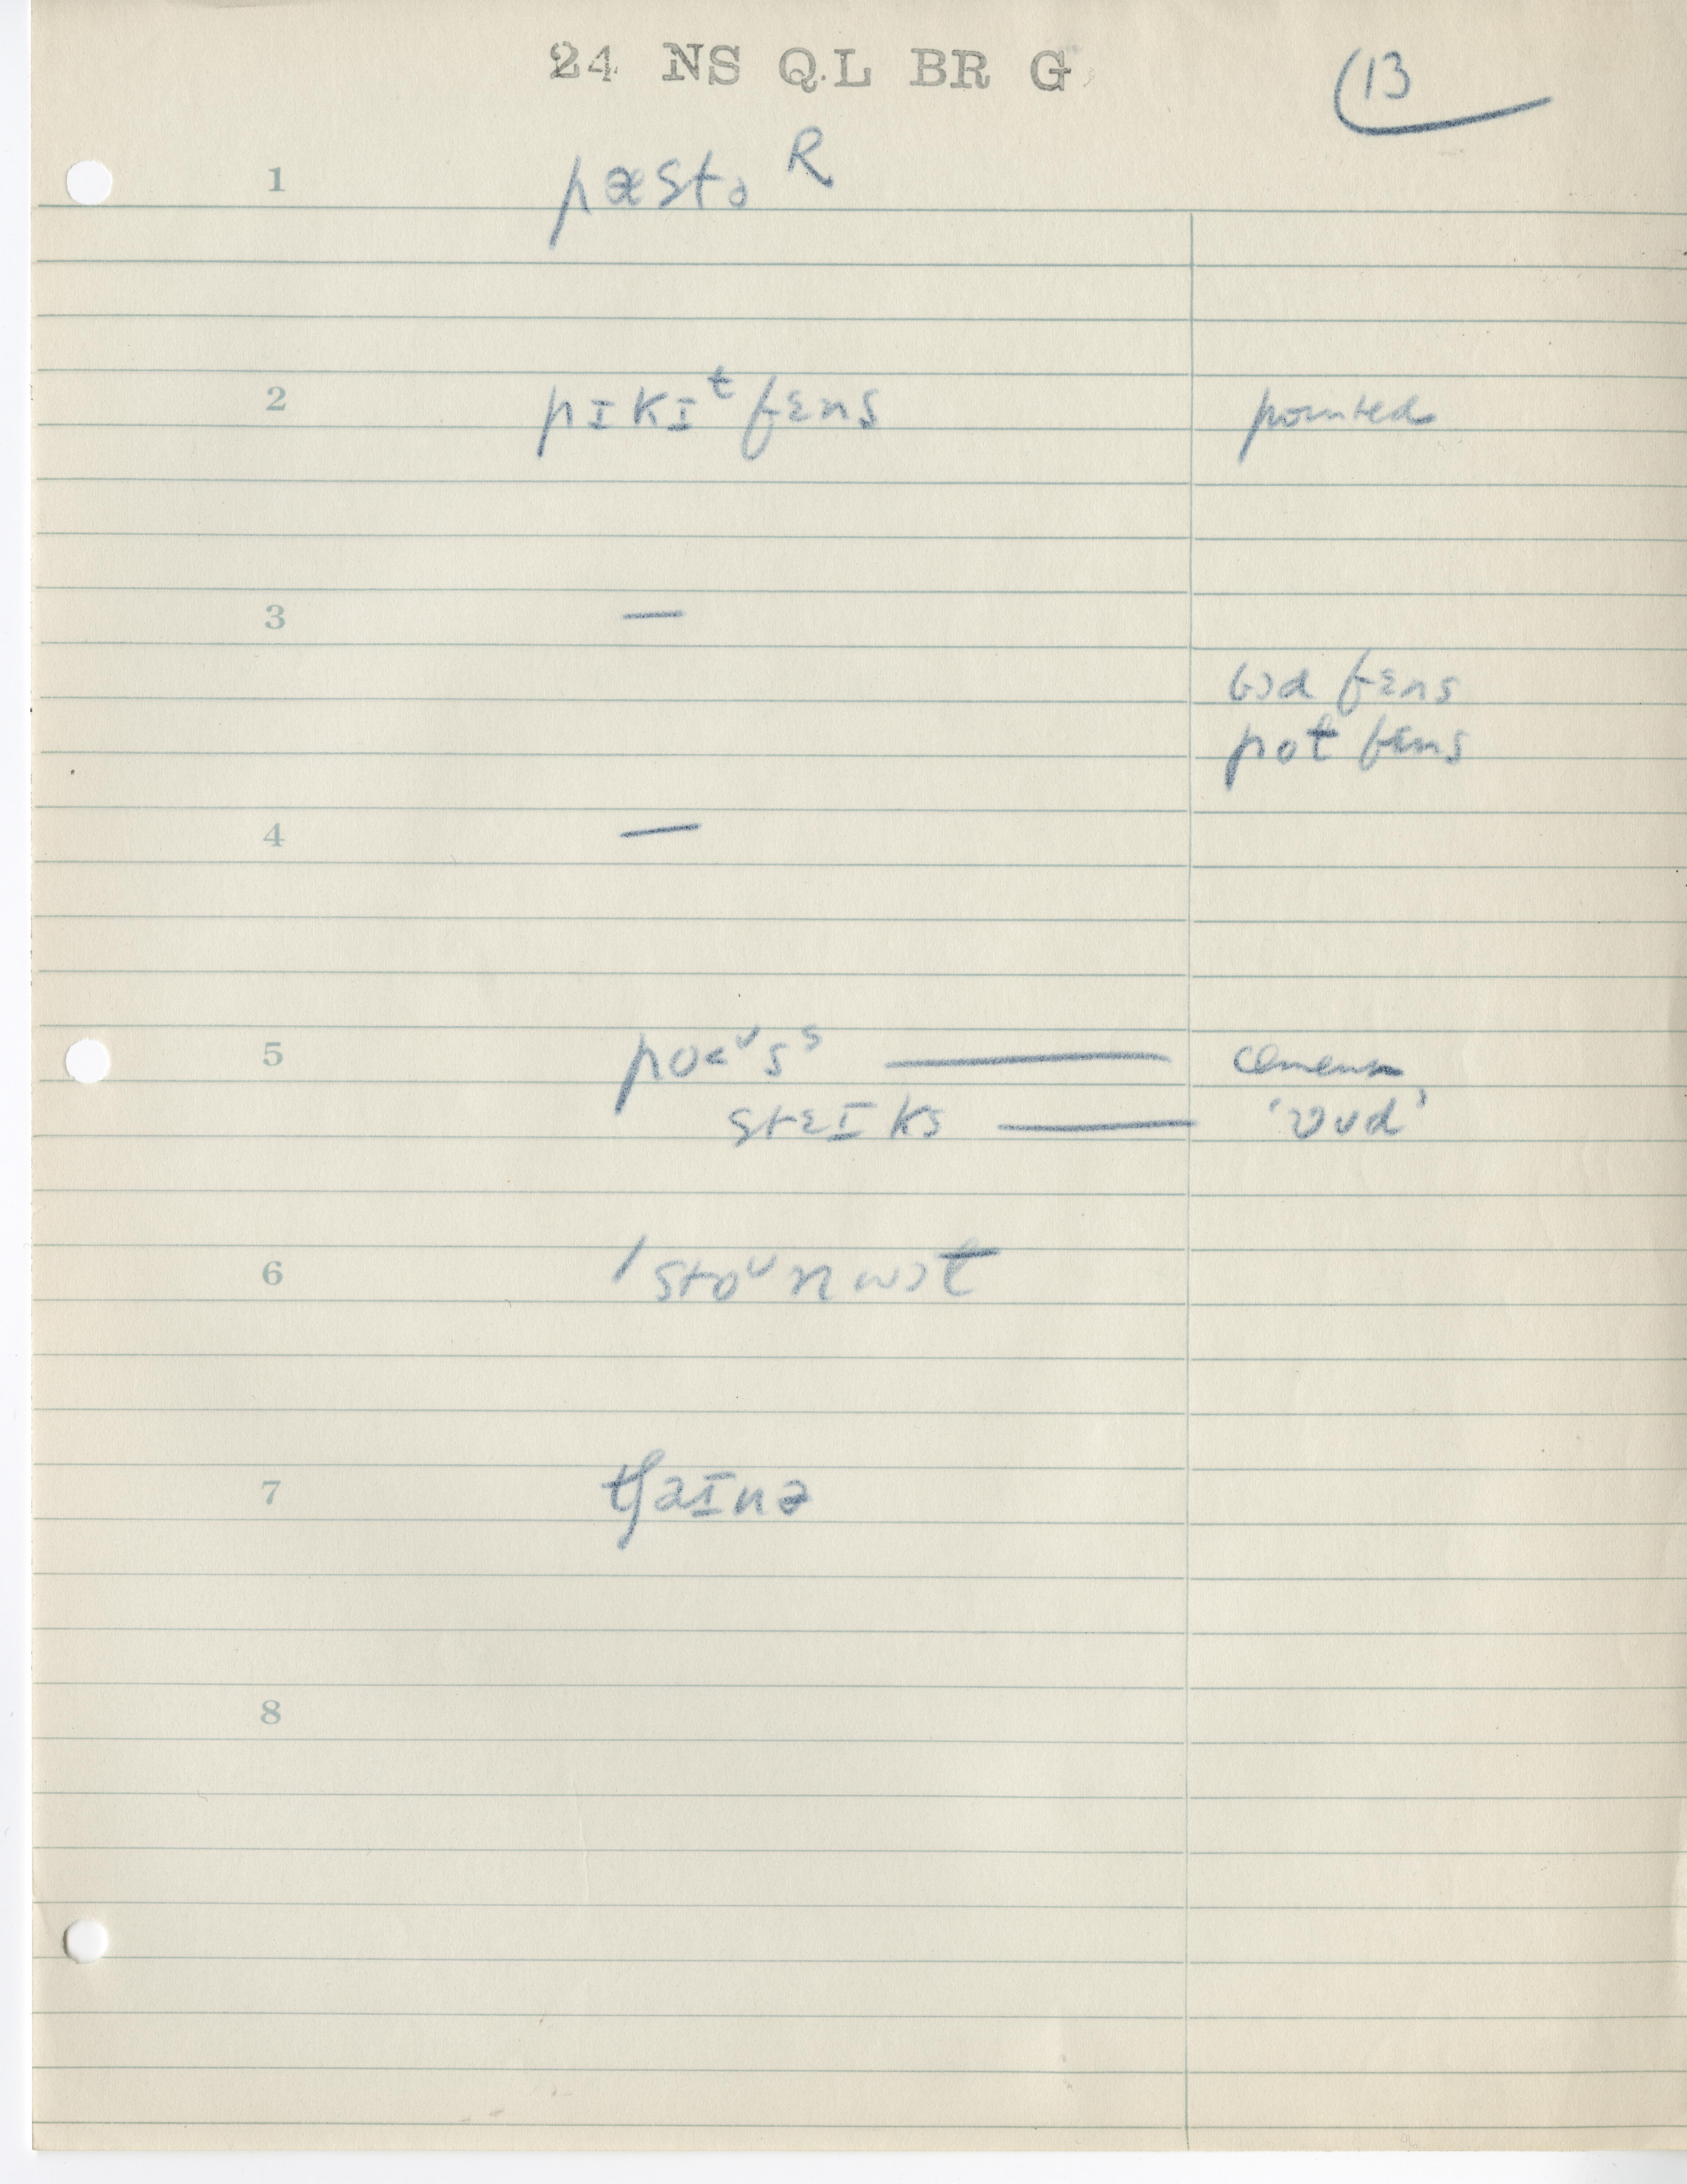 24 NS QL BR G
(13
1 pæstə R
2 pɪkɪᵗ fɛns pointed
3 —
bɔd fɛns
pot fɛns
4 —
5 —
stɛɪks — 'wud'
6 'stoᵘnwɔt
7 tʃaɪnə
8